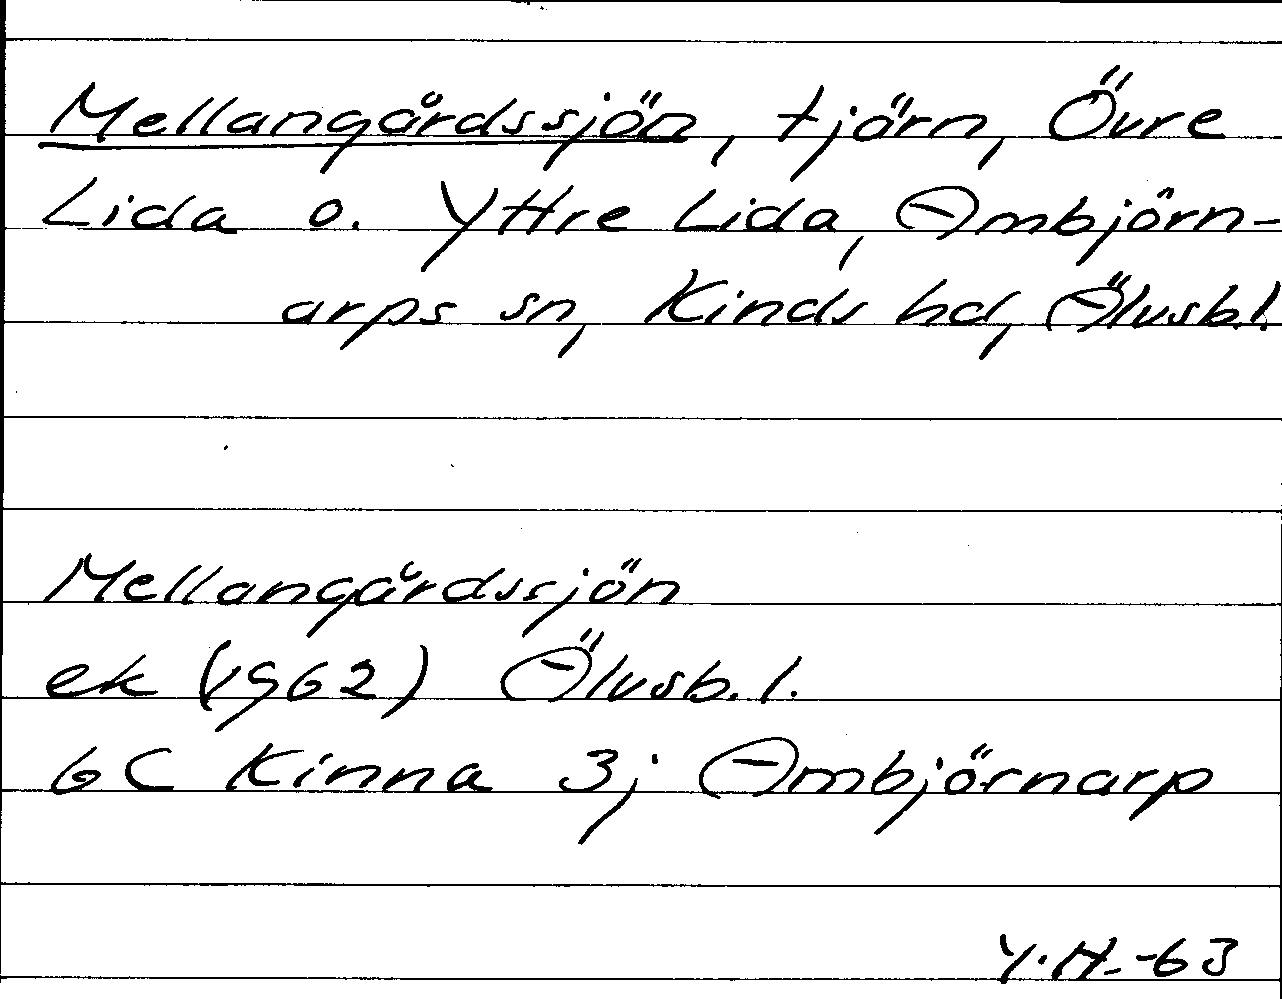 Mellangårdssjön, tjörn, Övre
Lida o. Yttre Lida, Ambjörn-
arps sn, Kinds hd, Älvsb.l.
Mellangårdssjön
ek (1962) Älvsb.l.
6C Kinna 3j Ambjörnarp
Y.H.-63